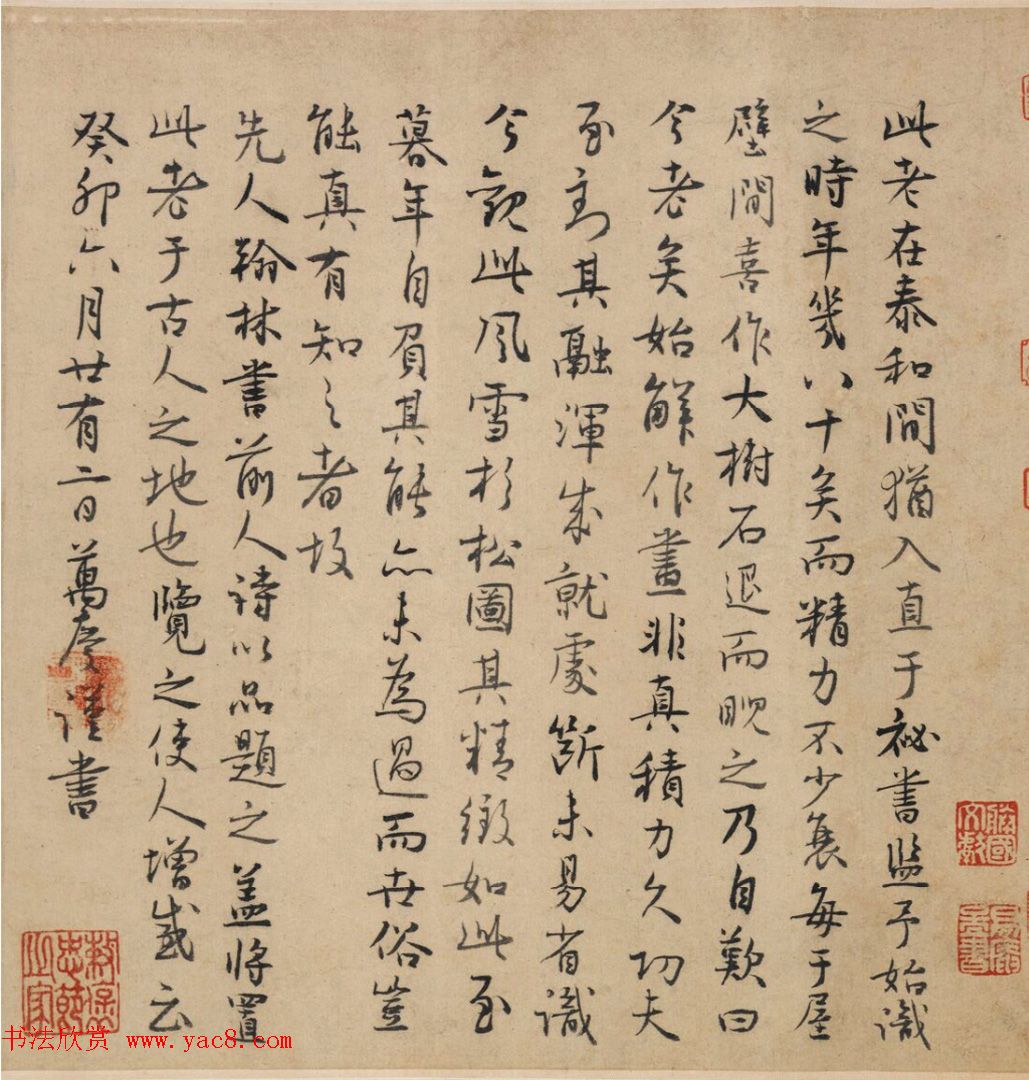 此老在泰和間猶入直于祕書監予始識
之時年幾八十矣而精力不少衰每于屋
壁間喜作大樹石退而睨之乃自歎曰
今老矣始解作畫非真積力久功夫
至到其融渾成就處斷未易省識
今觀此風雪杉松圖其精緻如此至
暮年自負其能亦未為過而世俗豈
能真有知之者故
先人翰林書前人詩以品題之蓋將置
此老于古人之地也覽之使人增感云
癸卯六月廿有二日萬慶謹書
忠節
之家
书法欣赏 www.yac8.com